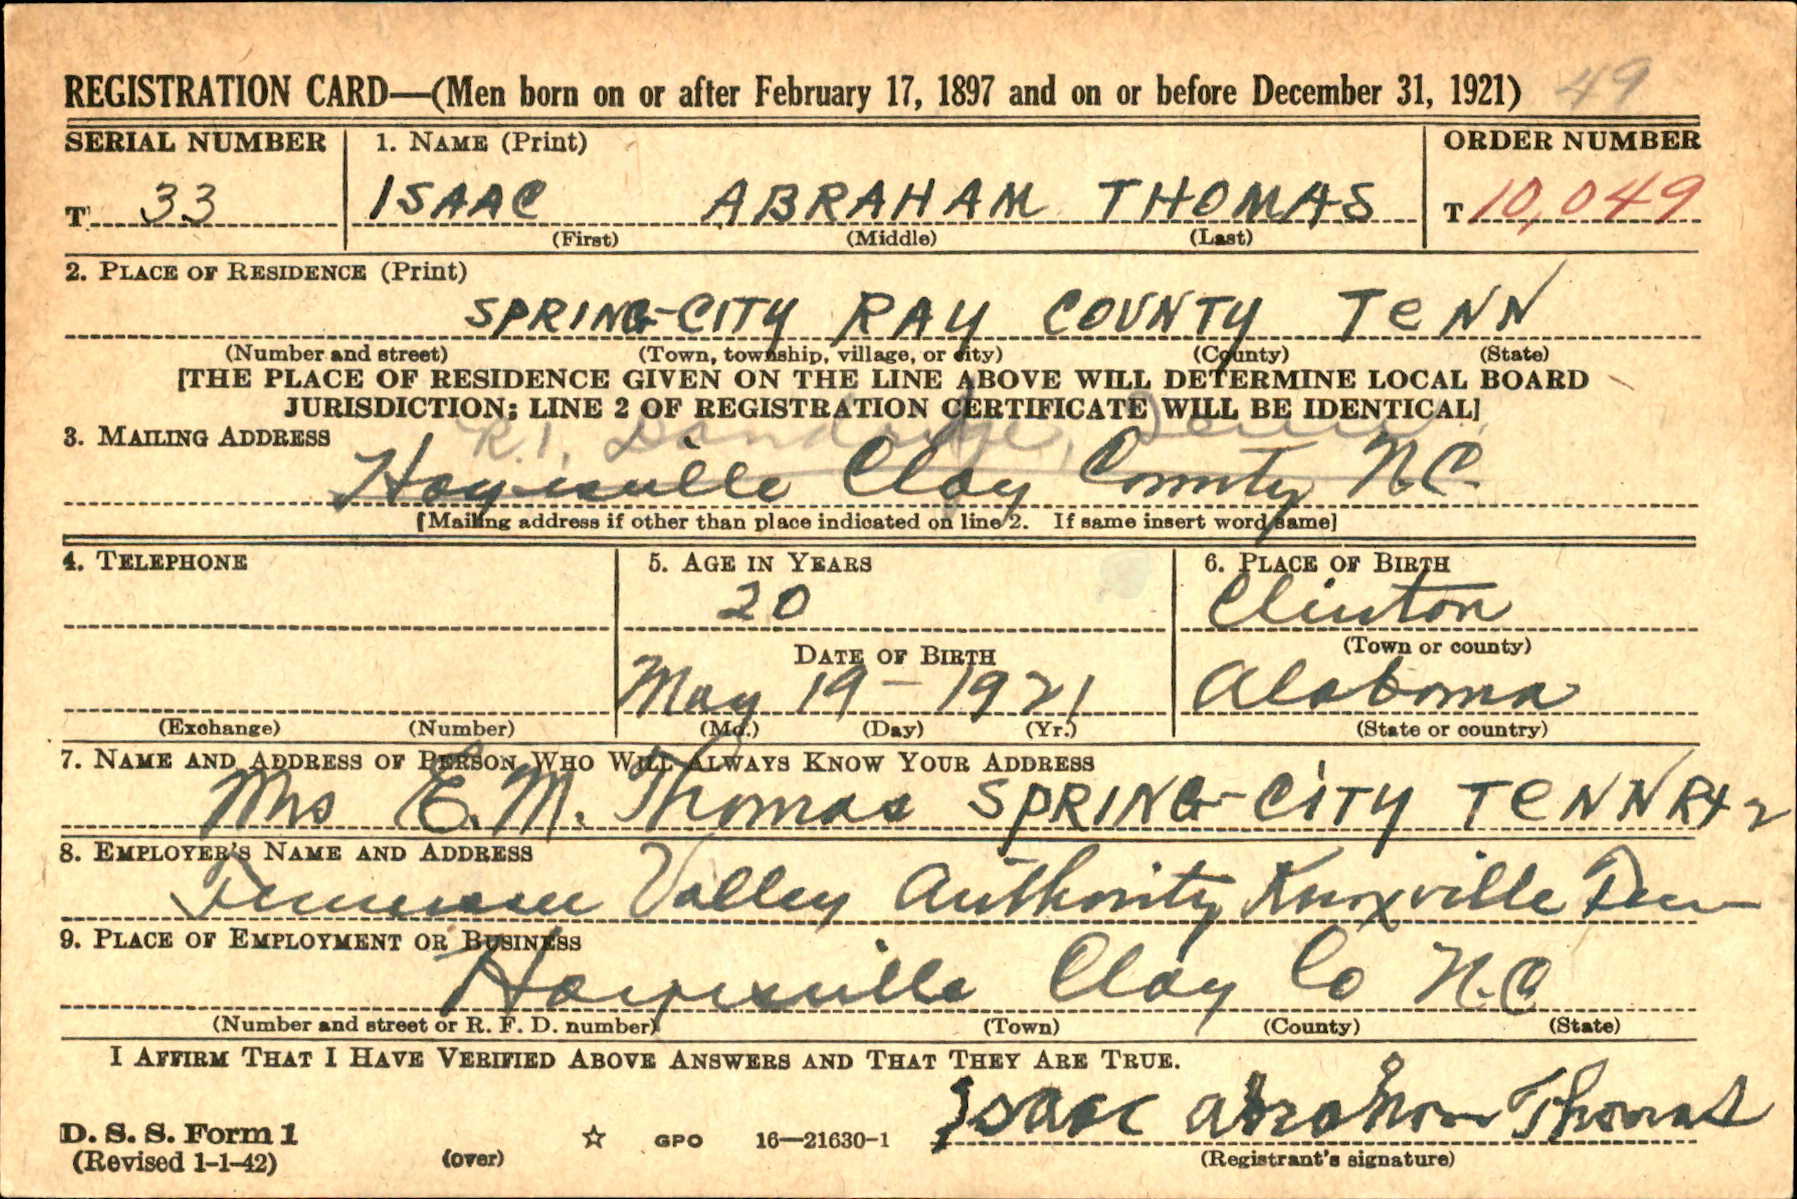 REGISTRATION CARD—(Men born on or after February 17, 1897 and on or before December 31, 1921) 49
SERIAL NUMBER 1. NAME (Print) ORDER NUMBER
T 33 ISAAC ABRAHAM THOMAS T 10,049
(First) (Middle) (Last)
2. PLACE OF RESIDENCE (Print)
SPRING-CITY RAY COUNTY TENN
(Number and street) (Town, township, village, or city) (County) (State)
[THE PLACE OF RESIDENCE GIVEN ON THE LINE ABOVE WILL DETERMINE LOCAL BOARD
JURISDICTION; LINE 2 OF REGISTRATION CERTIFICATE WILL BE IDENTICAL]
R.1, Dandridge, Tenn.
3. MAILING ADDRESS
Clay County N.C.
[Mailing address if other than place indicated on line 2. If same insert word same]
4. TELEPHONE 5. AGE IN YEARS 6. PLACE OF BIRTH
20 Clinton
DATE OF BIRTH (Town or county)
May 19-1921 Alabama
(Exchange) (Number) (Mo.) (Day) (Yr.) (State or country)
7. NAME AND ADDRESS OF PERSON WHO WILL ALWAYS KNOW YOUR ADDRESS
Mrs E.M. Thomas SPRING-CITY TENN Rt 2
8. EMPLOYER'S NAME AND ADDRESS
Tennessee Valley Authority Knoxville Tenn
9. PLACE OF EMPLOYMENT OR BUSINESS
Clay Co N.C.
(Number and street or R. F. D. number) (Town) (County) (State)
I AFFIRM THAT I HAVE VERIFIED ABOVE ANSWERS AND THAT THEY ARE TRUE.
Isaac Abraham Thomas
D. S. S. Form 1
(Revised 1-1-42) (over) ☆ GPO 16—21630-1 (Registrant's signature)